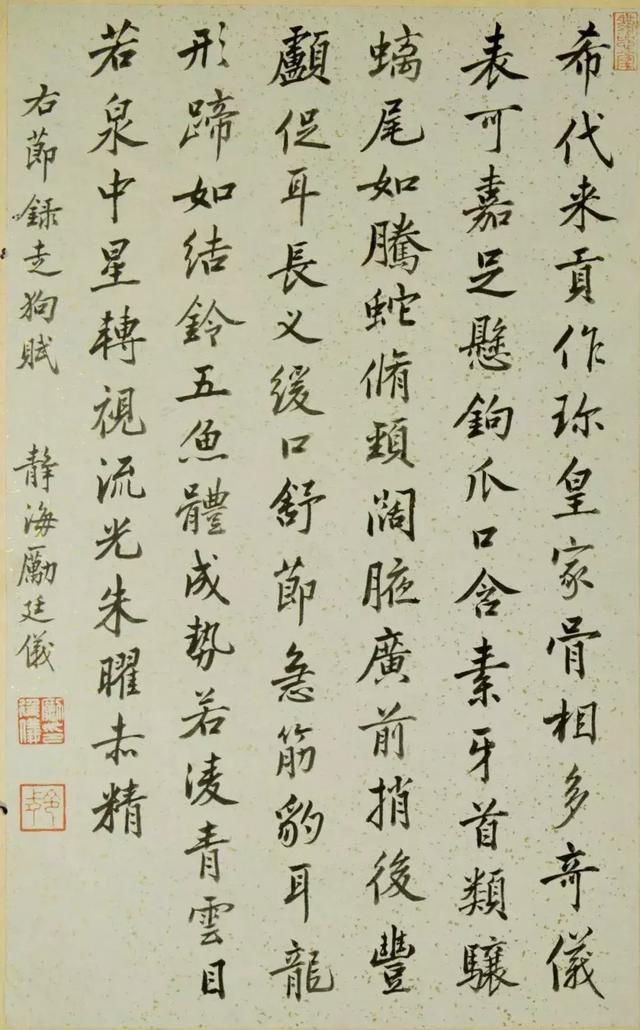 希代来貢作珎皇家骨相多奇儀
表可嘉足懸鉤爪口含素牙首類驤
螭尾如騰蛇脩頸闊腋廣前捎後豐
顱促耳長义緩口舒節急筋豹耳龍
形蹄如结鈴五魚體成勢若凌青雲目
若泉中星轉視流光朱曜赤精
右節錄走狗賦 静海勵廷儀